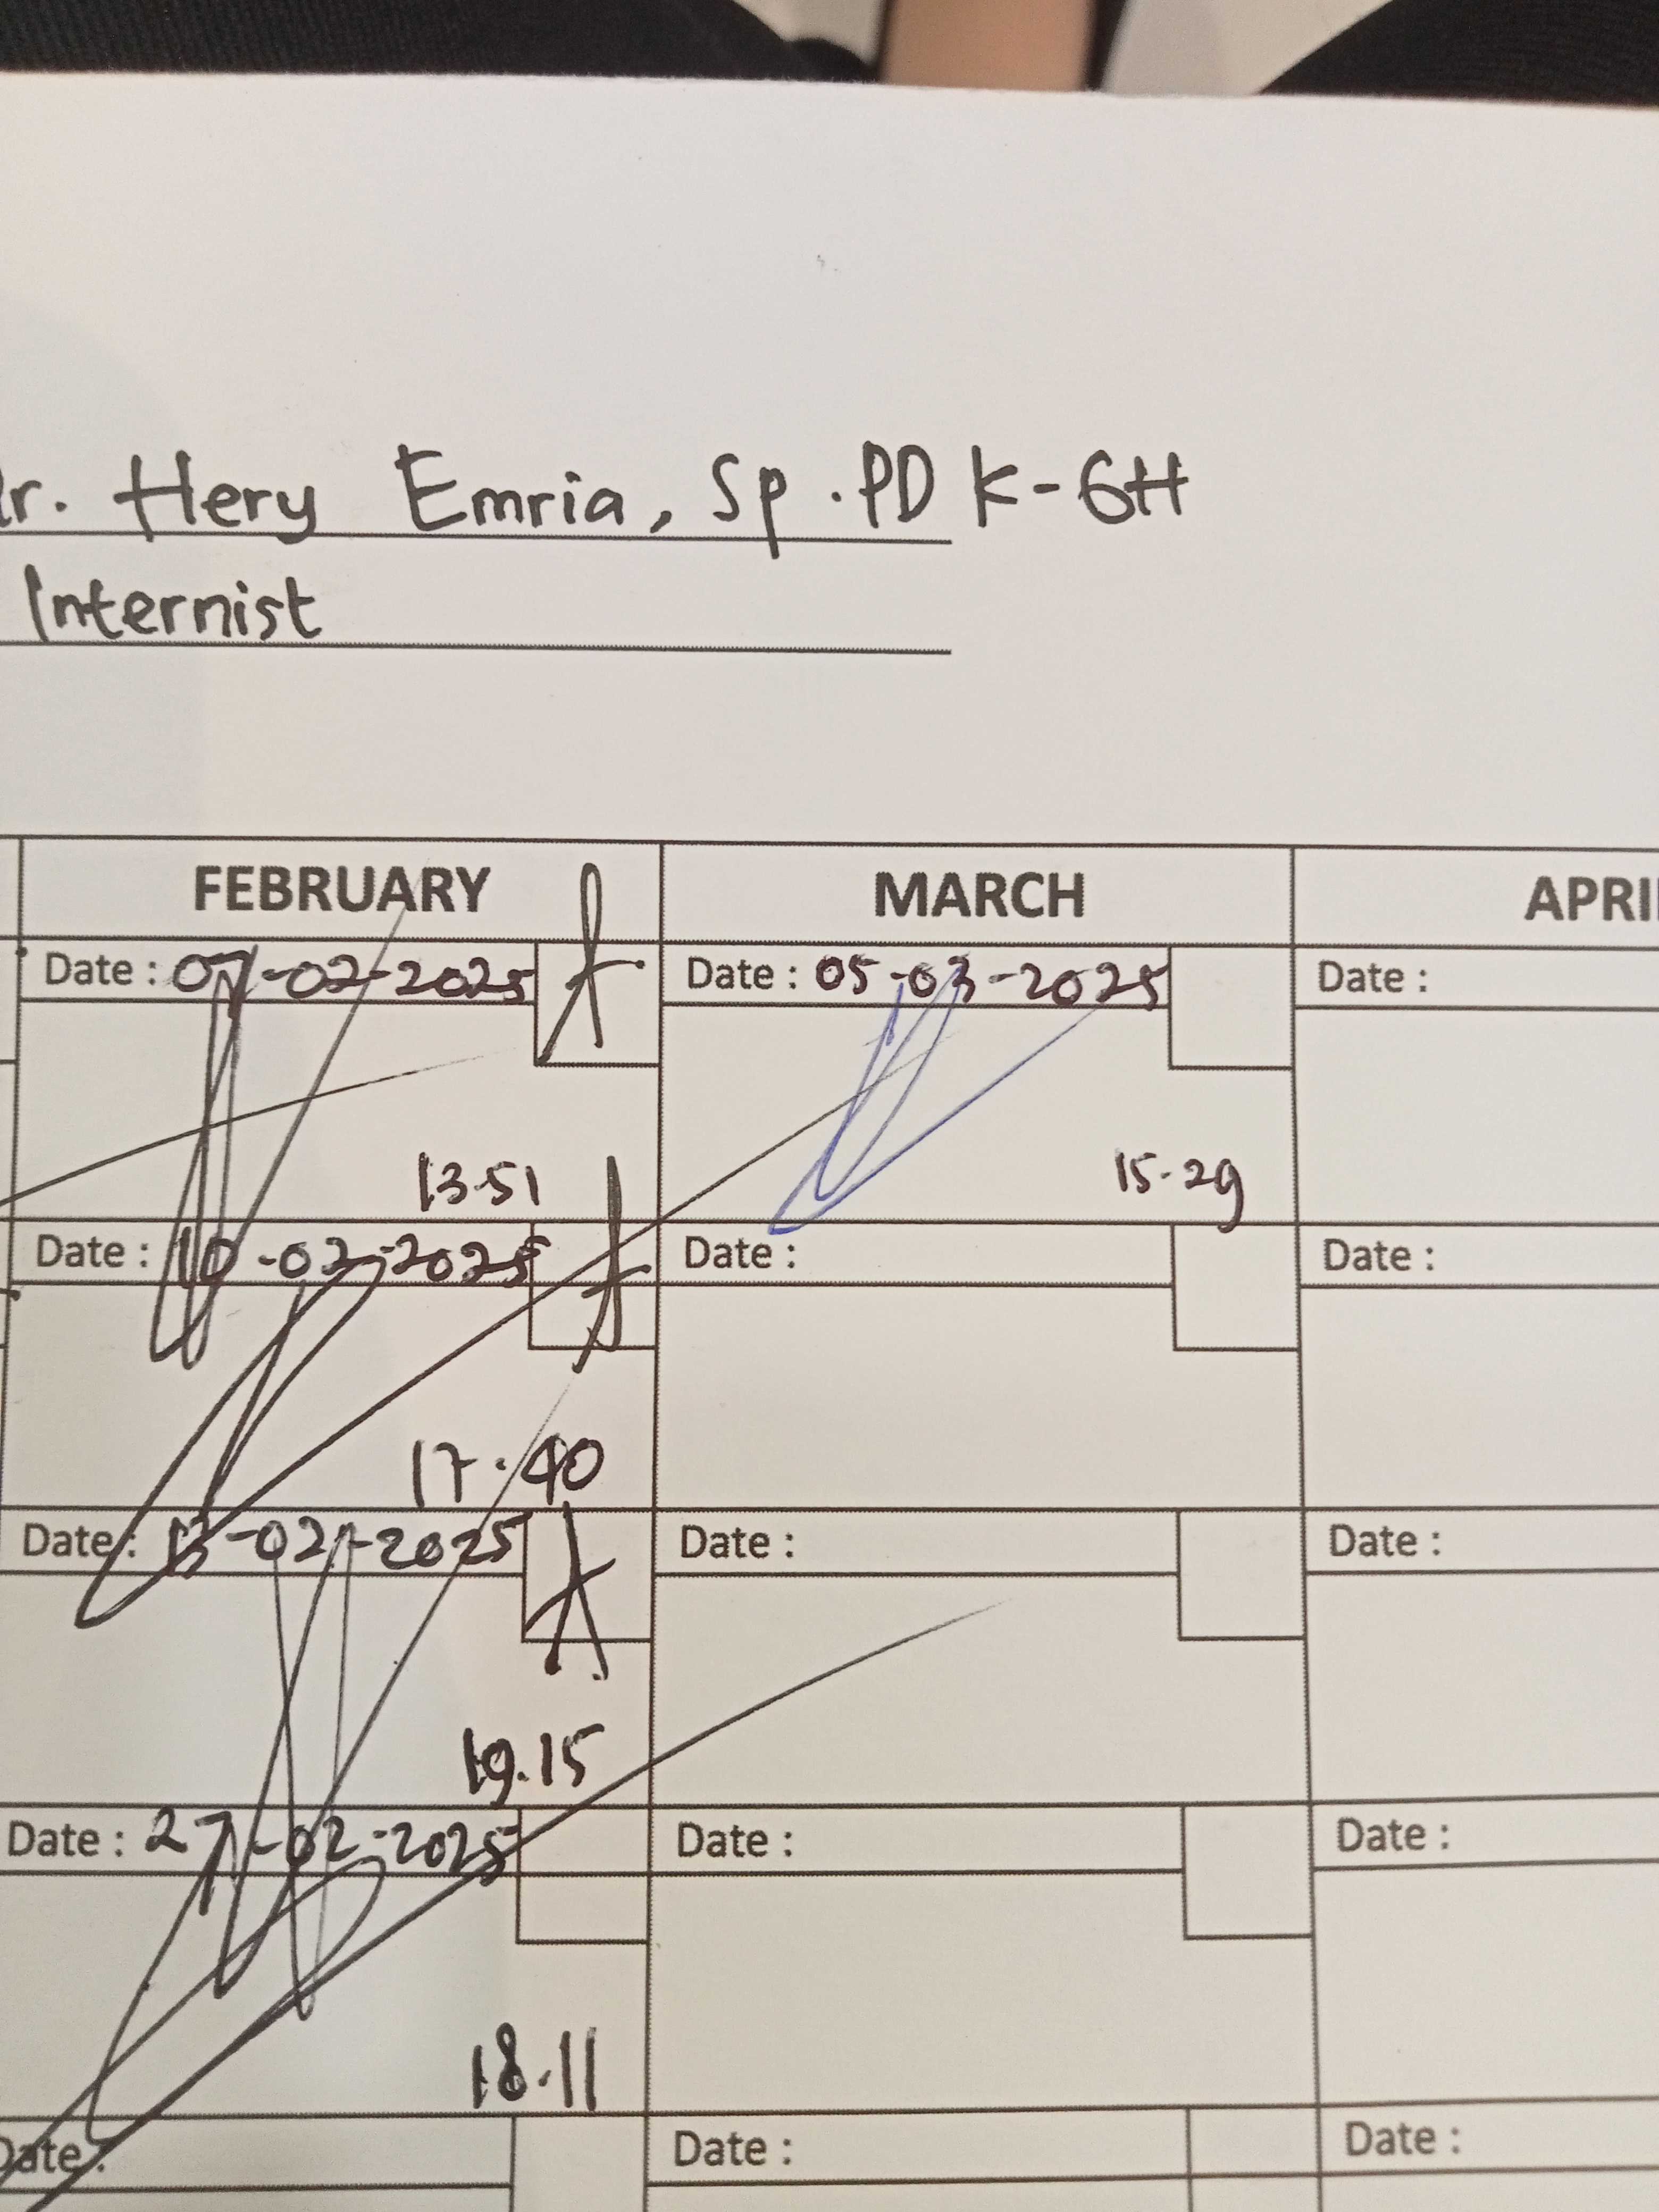 Dr. Hery Emria, Sp.PD K-GH
Internist
FEBRUARY MARCH APRI
Date : 07-02-2025 Date : 05-03-2025 Date :
13.51 15.29
Date : 10-02-2025 Date : Date :
17.40
Date : 13-02-2025 Date : Date :
19.15
Date : 27-02-2025 Date : Date :
18.11
Date : Date : Date :